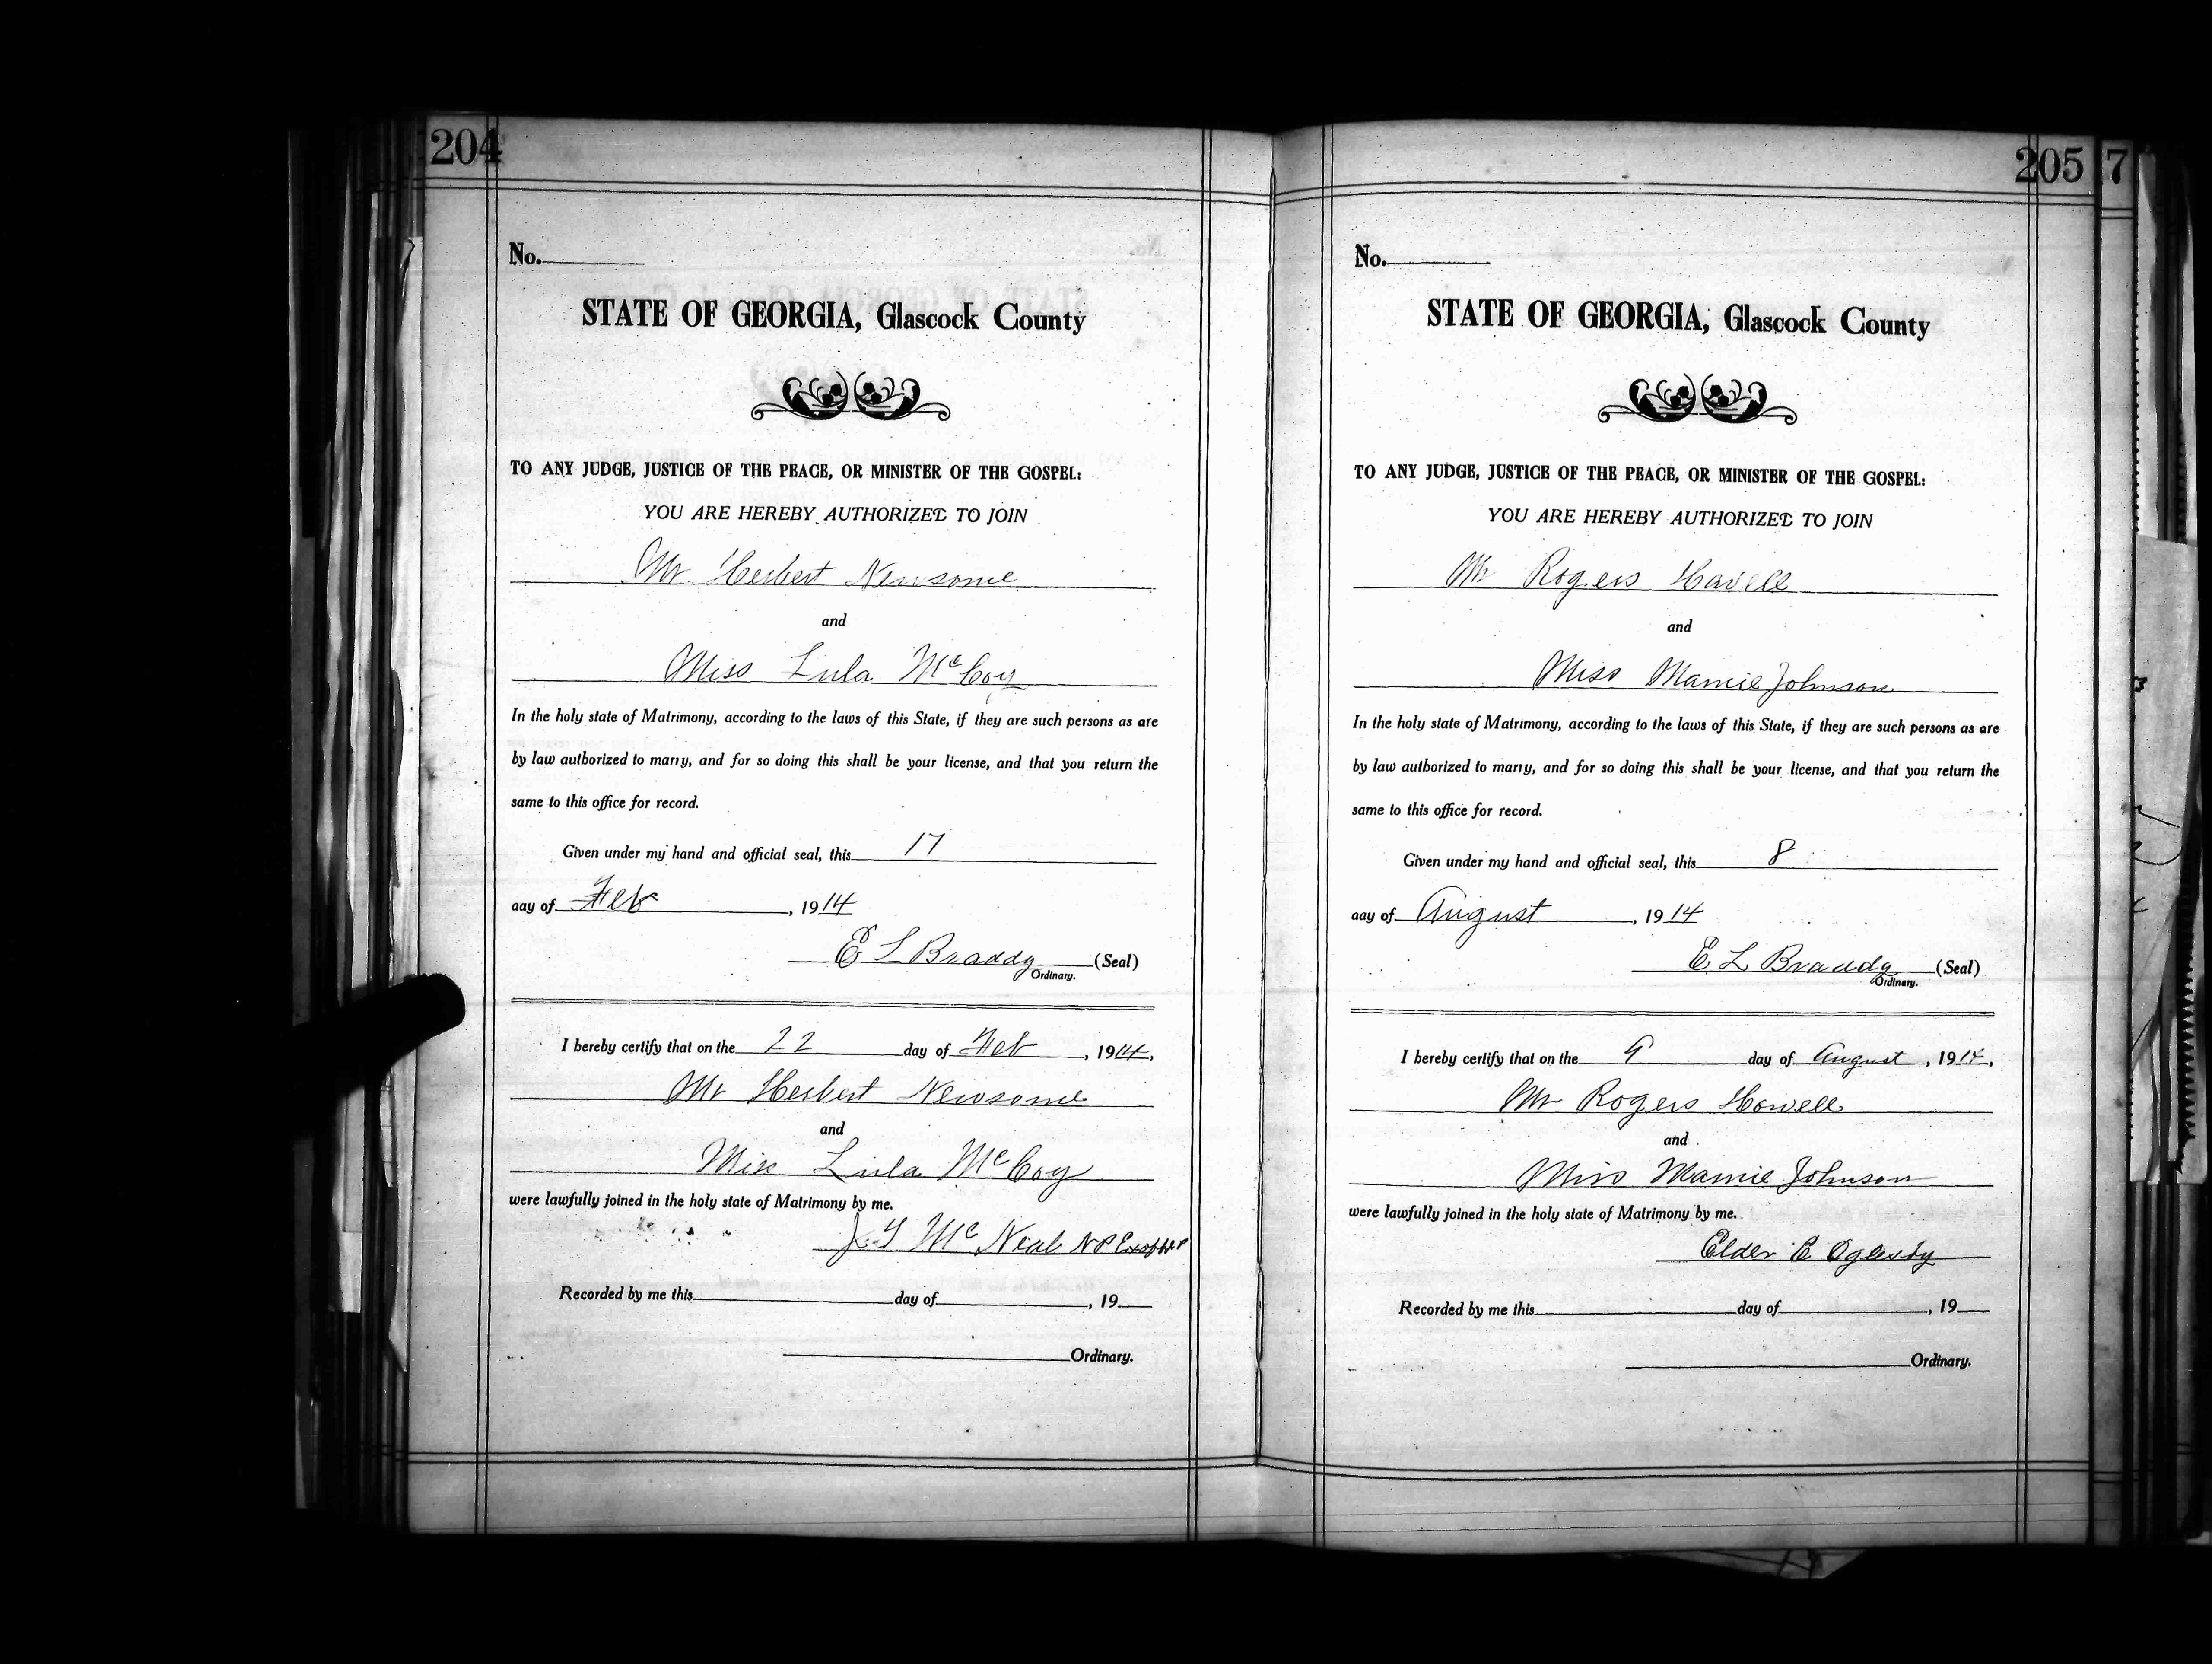 204
No.
STATE OF GEORGIA, Glascock County
TO ANY JUDGE, JUSTICE OF THE PEACE, OR MINISTER OF THE GOSPEL:
YOU ARE HEREBY AUTHORIZED TO JOIN
Mr Herbert Newsome
and
Miss Lula McCoy
In the holy state of Matrimony, according to the laws of this State, if they are such persons as are
by law authorized to marry, and for so doing this shall be your license, and that you return the
same to this office for record.
Given under my hand and official seal, this 17
day of Feb, 1914
E L Braddy (Seal)
Ordinary.
I hereby certify that on the 22 day of Feb, 1914,
Mr Herbert Newsome
and
Miss Lula McCoy
were lawfully joined in the holy state of Matrimony by me.
McNeal N P
Recorded by me this day of , 19
Ordinary.
205 7
No.
STATE OF GEORGIA, Glascock County
TO ANY JUDGE, JUSTICE OF THE PEACE, OR MINISTER OF THE GOSPEL:
YOU ARE HEREBY AUTHORIZED TO JOIN
Mr Rogers Howell
and
Miss Mamie Johnson
In the holy state of Matrimony, according to the laws of this State, if they are such persons as are
by law authorized to marry, and for so doing this shall be your license, and that you return the
same to this office for record.
Given under my hand and official seal, this 8
day of August, 1914
E L Braddy (Seal)
Ordinary.
I hereby certify that on the 9 day of August, 1914,
Mr Rogers Howell
and
Miss Mamie Johnson
were lawfully joined in the holy state of Matrimony by me.
Elder E Oglesby
Recorded by me this day of , 19
Ordinary.